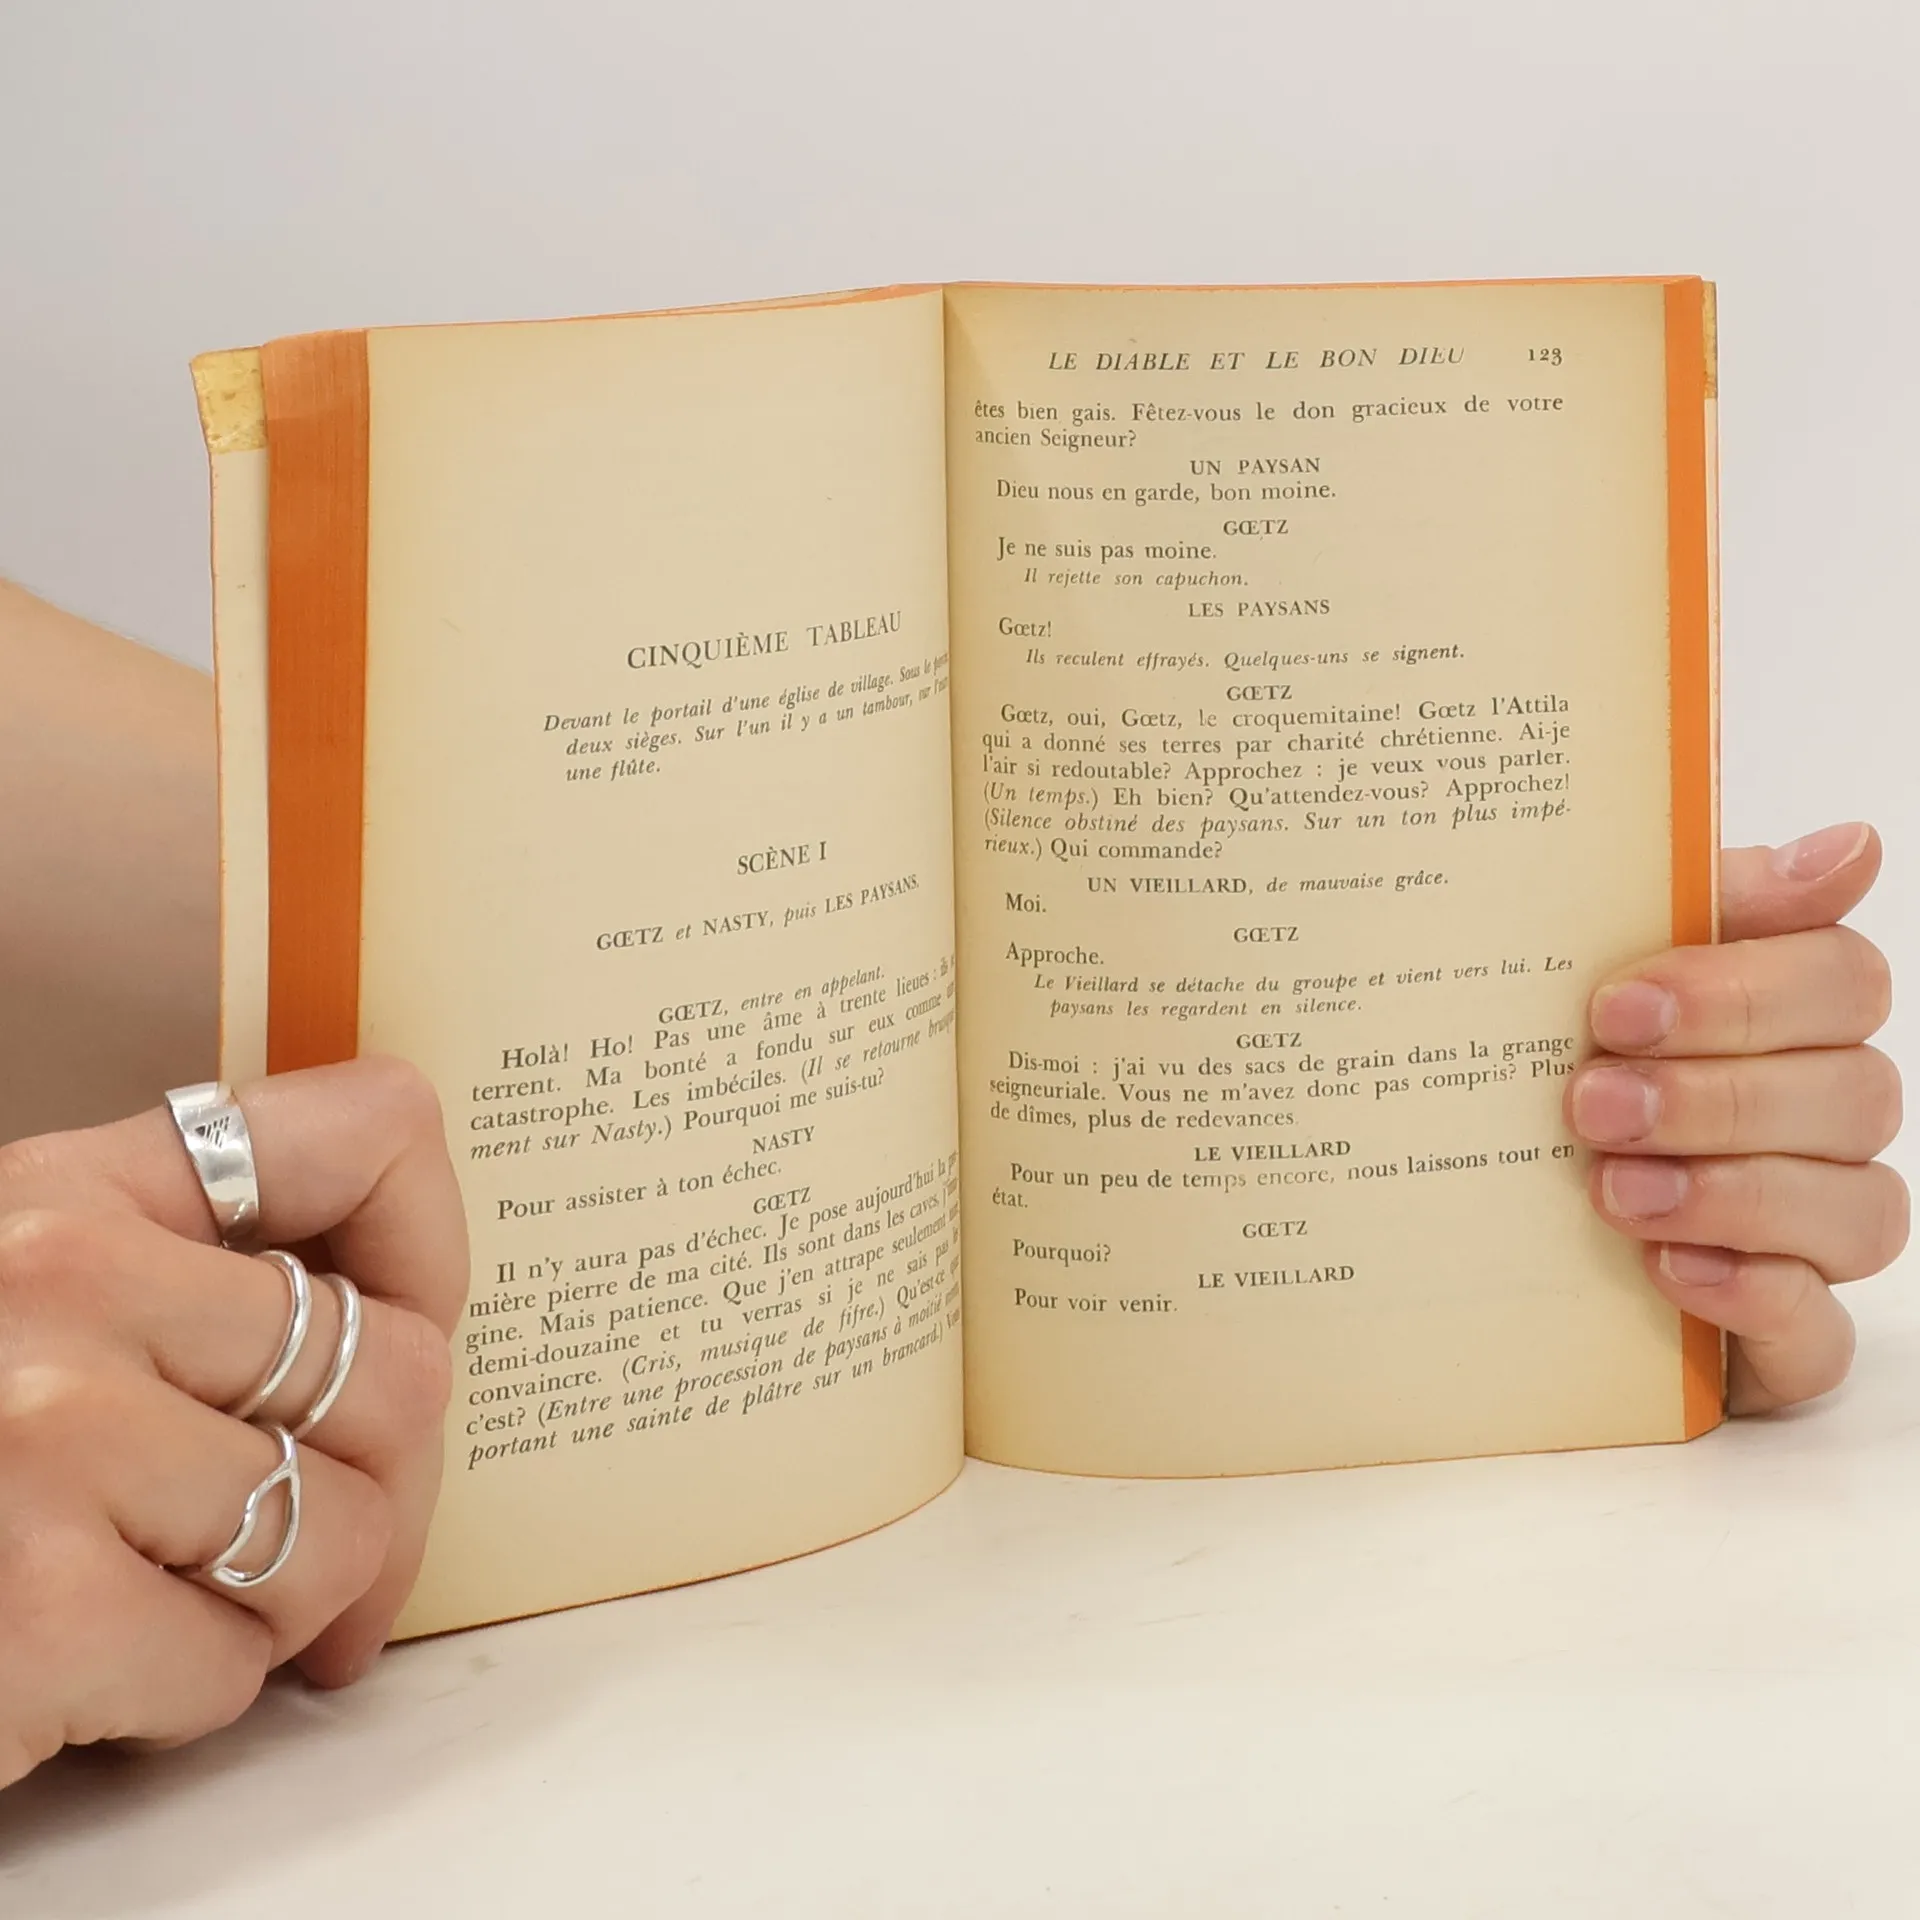 CINQUIÈME TABLEAU
Devant le portail d'une église de village. Sous le
deux sièges. Sur l'un il y a un tambour, sur
une flûte.
SCÈNE I
GŒTZ et NASTY, puis LES PAYSANS.
GŒTZ, entre en appelant.
Holà! Ho! Pas une âme à trente lieues : ils
terrent. Ma bonté a fondu sur eux comme
catastrophe. Les imbéciles. (Il se retourne
ment sur Nasty.) Pourquoi me suis-tu?
NASTY
Pour assister à ton échec.
GŒTZ
Il n'y aura pas d'échec. Je pose aujourd'hui la
mière pierre de ma cité. Ils sont dans les caves,
gine. Mais patience. Que j'en attrape seulement
demi-douzaine et tu verras si je ne sais pas
convaincre. (Cris, musique de fifre.) Qu'est-ce que
c'est? (Entre une procession de paysans à moitié
portant une sainte de plâtre sur un brancard.)
LE DIABLE ET LE BON DIEU 123
êtes bien gais. Fêtez-vous le don gracieux de votre
ancien Seigneur?
UN PAYSAN
Dieu nous en garde, bon moine.
GŒTZ
Je ne suis pas moine.
Il rejette son capuchon.
LES PAYSANS
Gœtz!
Ils reculent effrayés. Quelques-uns se signent.
GŒTZ
Gœtz, oui, Gœtz, le croquemitaine! Gœtz l'Attila
qui a donné ses terres par charité chrétienne. Ai-je
l'air si redoutable? Approchez : je veux vous parler.
(Un temps.) Eh bien? Qu'attendez-vous? Approchez!
(Silence obstiné des paysans. Sur un ton plus impé-
rieux.) Qui commande?
UN VIEILLARD, de mauvaise grâce.
Moi.
GŒTZ
Approche.
Le Vieillard se détache du groupe et vient vers lui. Les
paysans les regardent en silence.
GŒTZ
Dis-moi : j'ai vu des sacs de grain dans la grange
seigneuriale. Vous ne m'avez donc pas compris? Plus
de dîmes, plus de redevances.
LE VIEILLARD
Pour un peu de temps encore, nous laissons tout en
état.
GŒTZ
Pourquoi?
LE VIEILLARD
Pour voir venir.